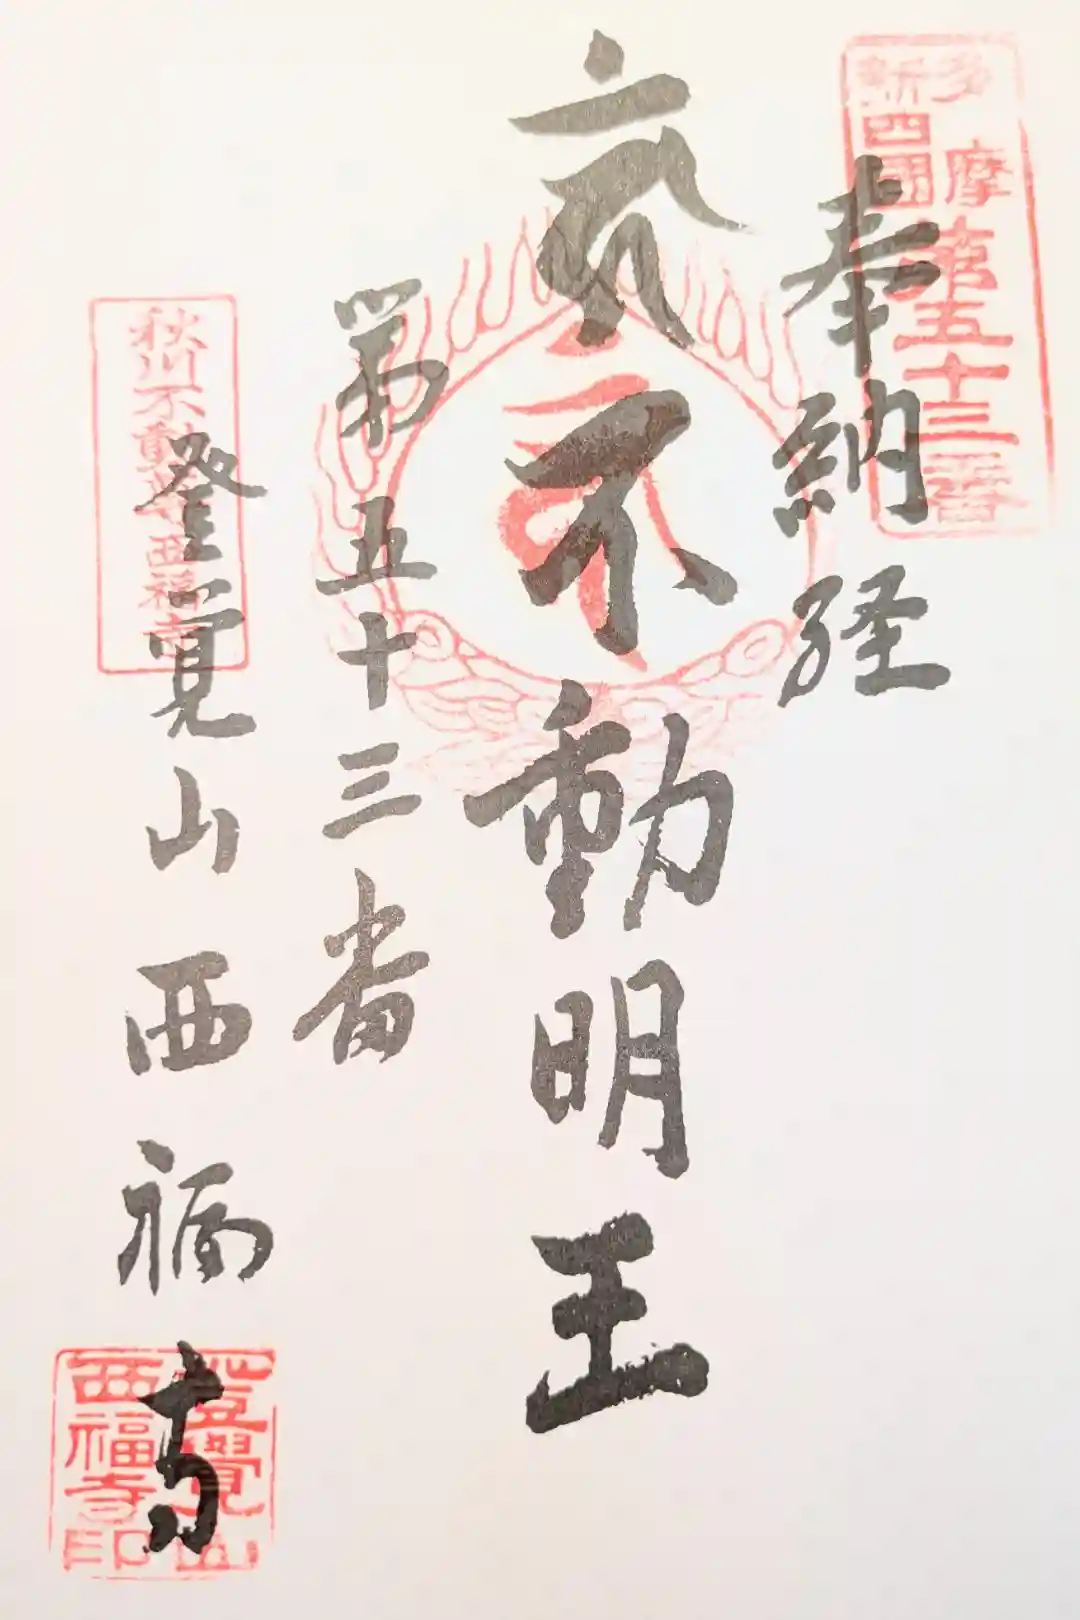 多摩
新四国
第五十三番
奉納経
不動明王
第五十三番
秋川不動尊
西福寺
登覚山西福寺
登覺山
西福寺印